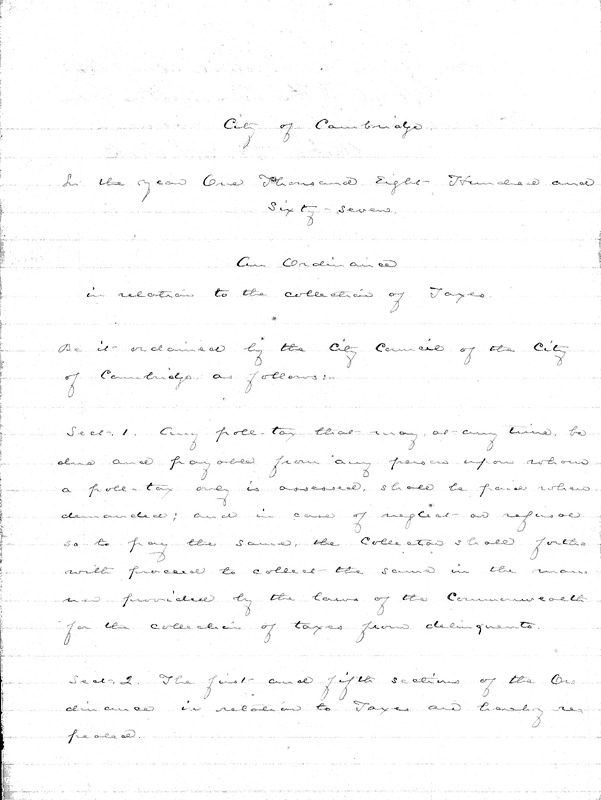 City of Cambridge.
In the year One Thousand Eight Hundred and
Sixty-seven.
An Ordinance
in relation to the collection of Taxes.
Be it ordained by the City Council of the City
of Cambridge as follows:-
Sect. 1. Any poll-tax that may, at any time, be
due and payable from any person upon whom
a poll-tax only is assessed, shall be paid when
demanded; and in case of neglect or refusal
so to pay the same, the Collector shall forth
with proceed to collect the same in the man
ner provided by the laws of the Commonwealth
for the collection of taxes from delinquents.
Sect. 2. The first and fifth sections of the Or
dinance in relation to Taxes are hereby re
pealed.